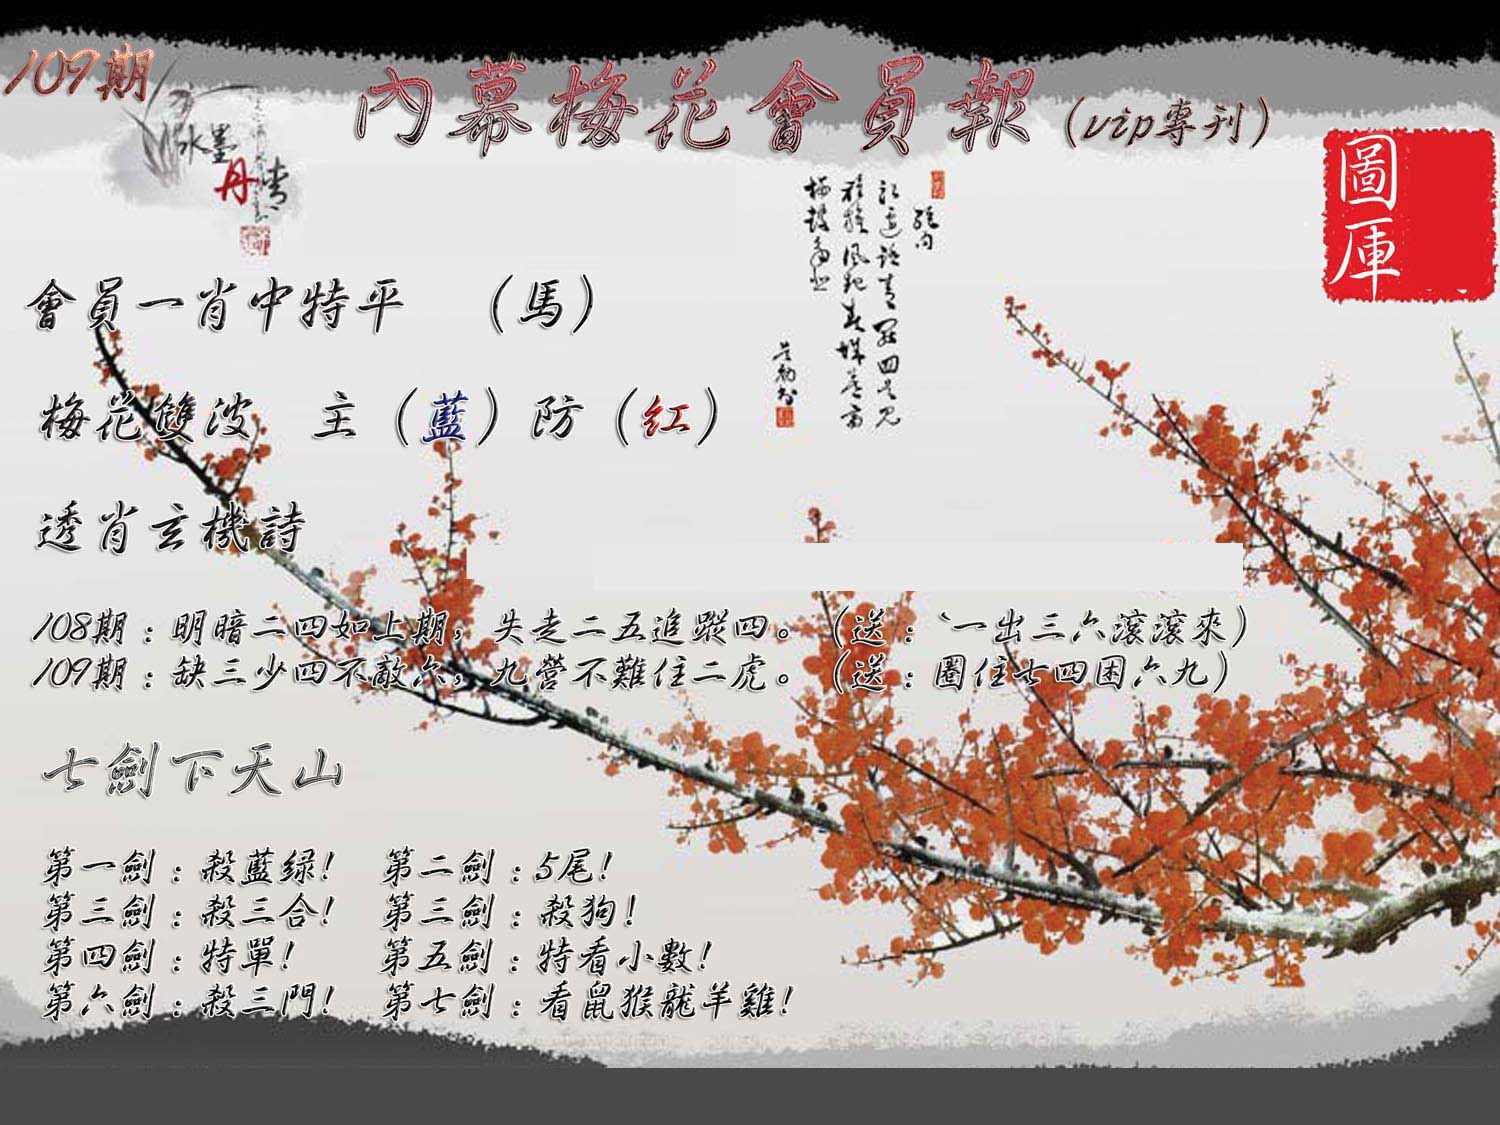 109期
內幕梅花會員報(vip專刊)
水墨
丹青
圖庫
會員一肖中特平 (馬)
梅花雙波 主(藍)防(紅)
透肖玄機詩
108期:明暗二四如上期,失走二五追蹤四。(送:`一出三六滾滾來)
109期:缺三少四不敵六,九營不難住二虎。(送:圈住七四困六九)
七劍下天山
第一劍:殺藍绿! 第二劍:5尾!
第三劍:殺三合! 第三劍:殺狗!
第四劍:特單! 第五劍:特看小數!
第六劍:殺三門! 第七劍:看鼠猴龍羊雞!